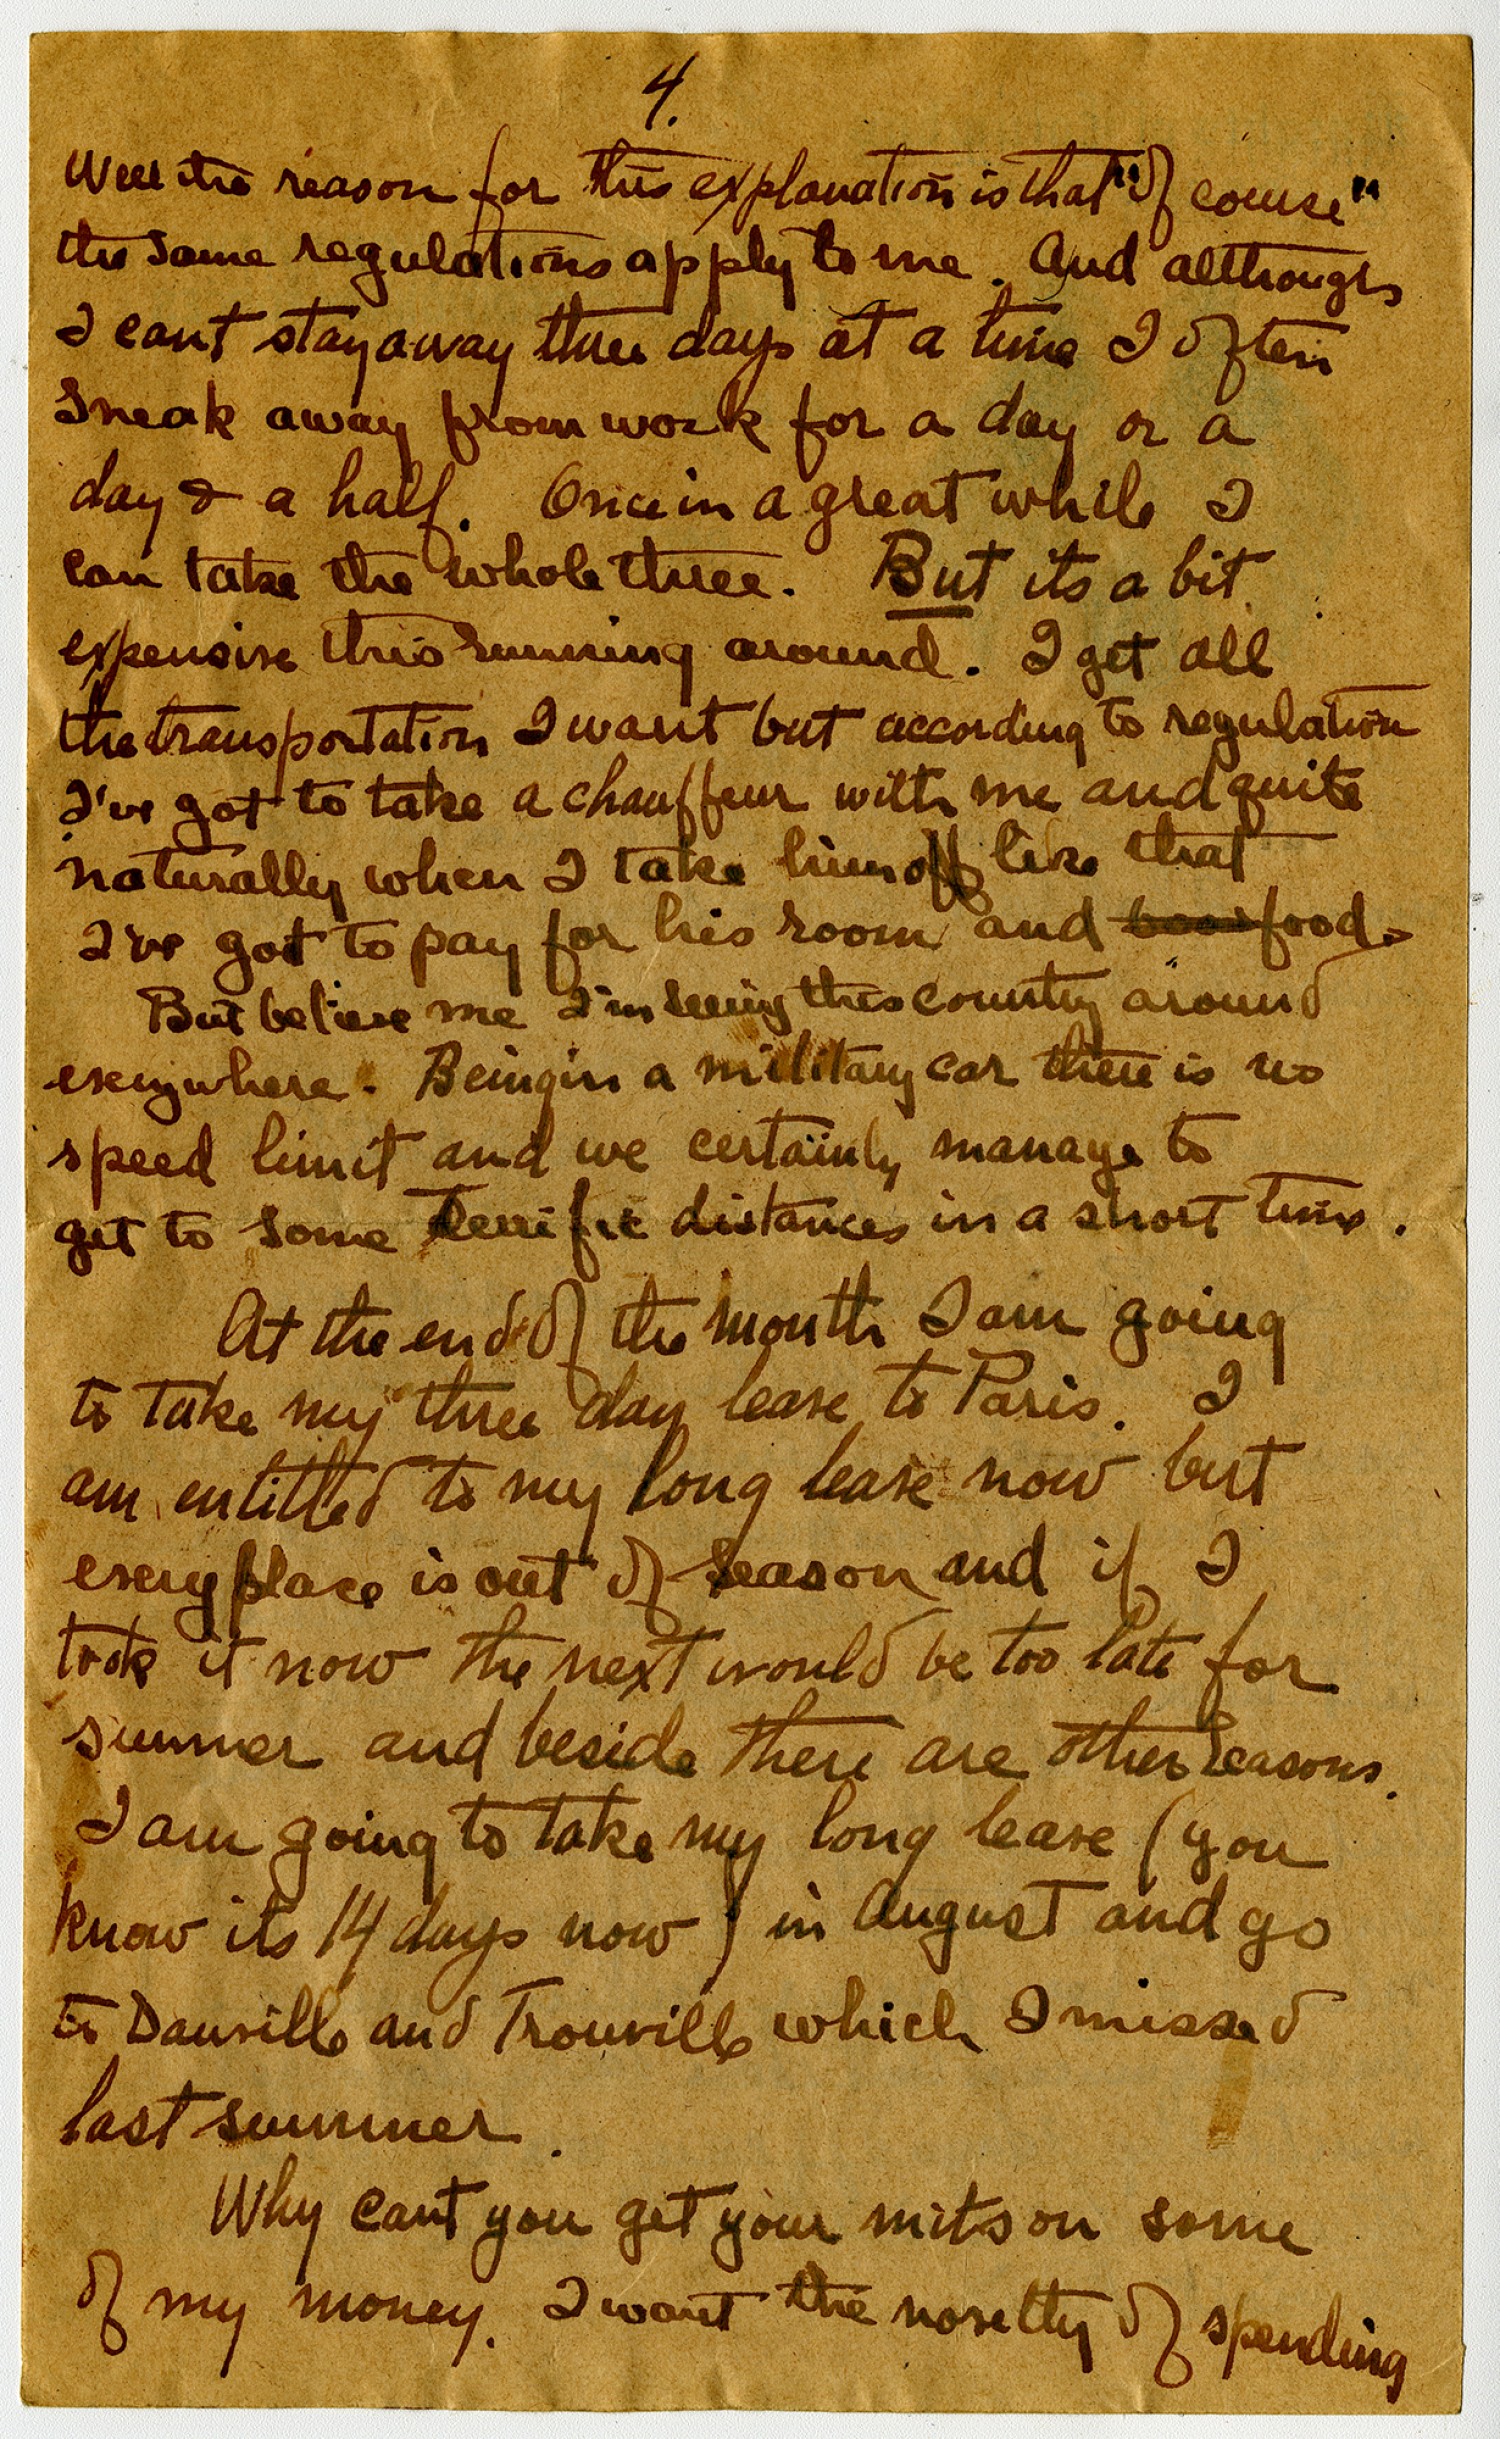 4.
Well the reason for this explanation is that "of course"
the same regulations apply to me. And although
I cant stay away three days at a time I often
sneak away from work for a day or a
day & a half. Once in a great while I
can take the whole three. But its a bit
expensive this running around. I get all
the transportation I want but according to regulation
I've got to take a chauffeur with me and quite
naturally when I take him off like that
I've got to pay for his room and food.
But believe me I'm seeing this country around
everywhere. Being in a military car there is no
speed limit and we certainly manage to
get to some terrific distances in a short time.
At the end of the month I am going
to take my three day leave to Paris. I
am entitled to my long leave now but
every place is out of season and if I
took it now the next would be too late for
summer and beside there are other reasons.
I am going to take my long leave (you
know its 14 days now) in August and go
to Dauville and Trouville which I missed
last summer.
Why cant you get your mits on some
of my money. I want the novelty of spending